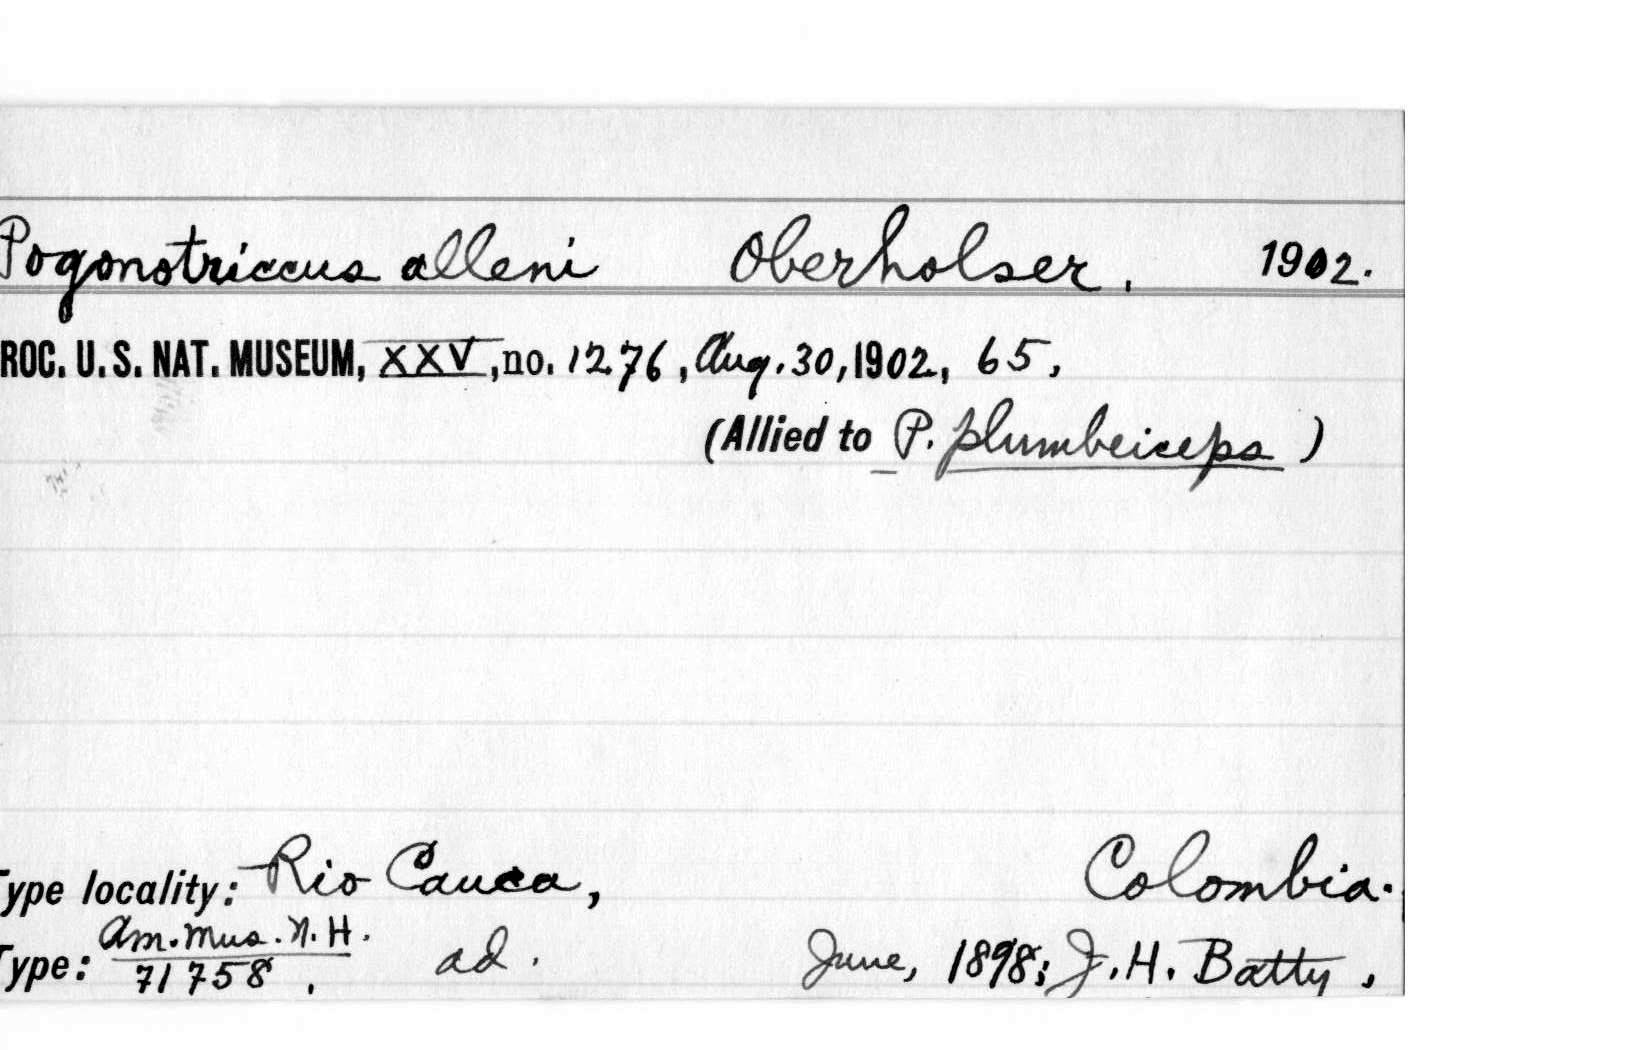 Pogonotriccus alleni Oberholser. 1902.
ROC. U. S. NAT. MUSEUM, XXV, no. 1276, Aug. 30, 1902, 65,
(Allied to P. plumbeiceps )
Type locality: Rio Cauca, Colombia.
Type: Am. Mus. N. H. 71758, ad. June, 1898; J. H. Batty,